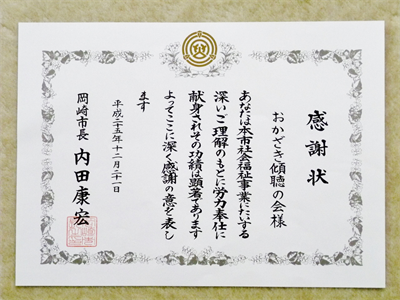 感謝状
おかざき傾聴の会様
あなたは本市社会福祉事業にたいする
深いご理解のもとに労力奉仕に
献身されその功績は顕著であります
よってここに深く感謝の意を表し
ます
平成二十五年十二月二十一日
岡崎市長 内田康宏